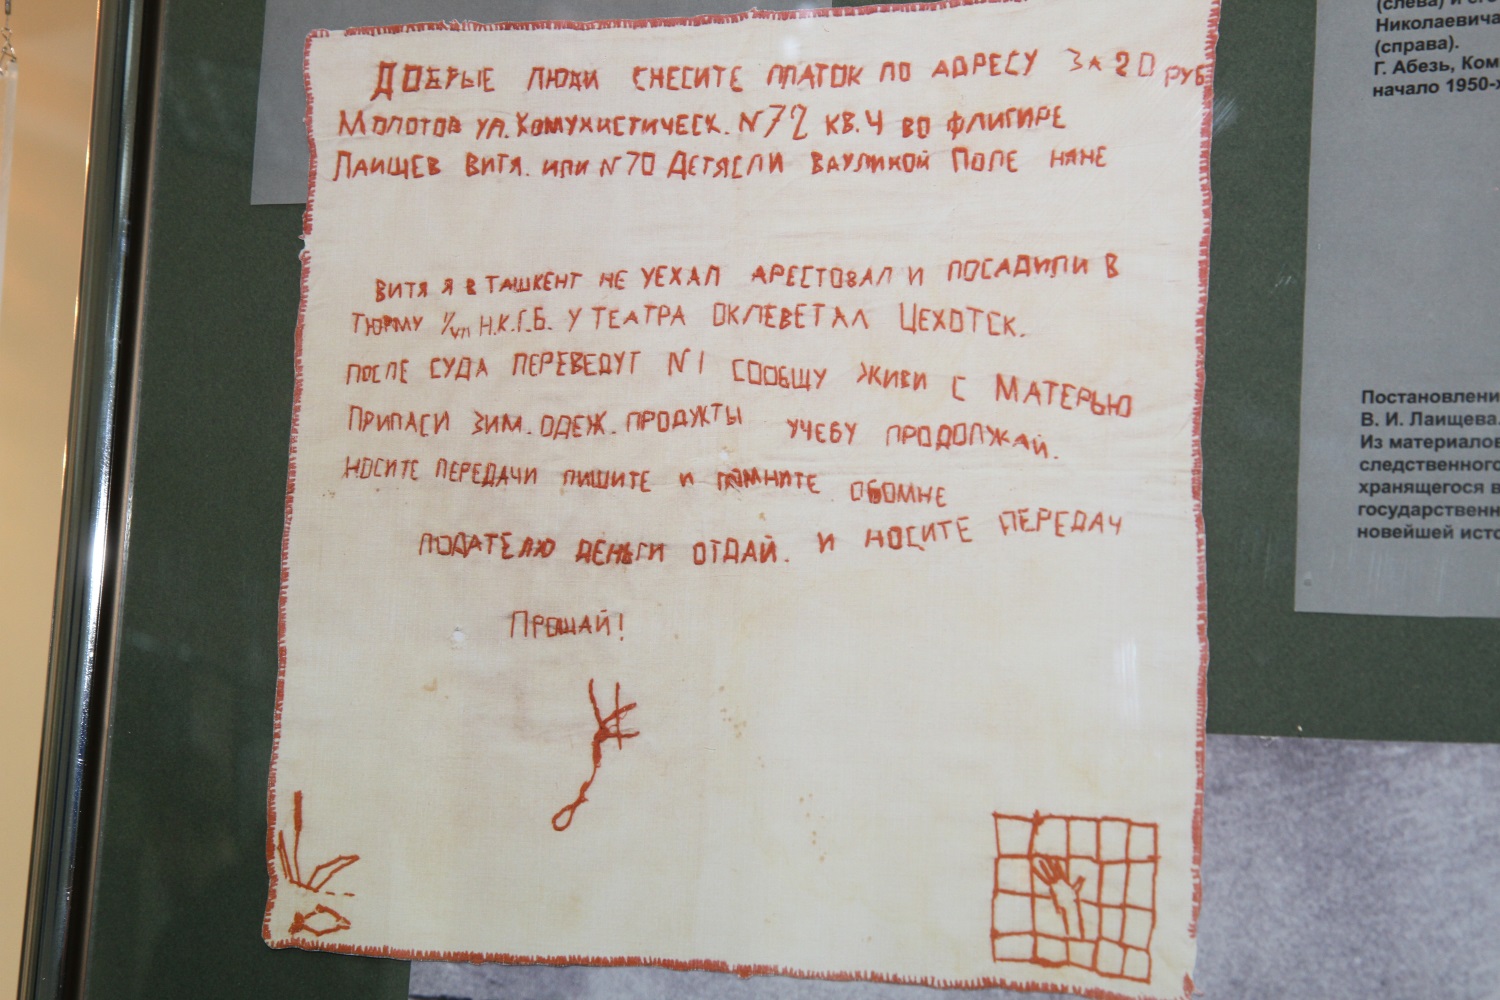 ДОБРЫЕ ЛЮДИ СНЕСИТЕ ПЛАТОК ПО АДРЕСУ ЗА 20 РУБ
МОЛОТОВ УЛ. КОМУНИСТИЧЕСК. N72 КВ. 4 ВО ФЛИГИРЕ
ЛАИЩЕВ ВИТЯ. ИЛИ N70 ДЕТЯСЛИ ПОЛЕ НЯНЕ
ВИТЯ Я В ТАШКЕНТ НЕ УЕХАЛ АРЕСТОВАЛ И ПОСАДИЛИ В
ТЮРМУ Н.К.Г.Б. У ТЕАТРА ОКЛЕВЕТАЛ ЦЕХОТСК.
ПОСЛЕ СУДА ПЕРЕВЕДУТ N1 СООБЩУ ЖИВИ С МАТЕРЬЮ
ПРИПАСИ ЗИМ. ОДЕЖ. ПРОДУКТЫ УЧЕБУ ПРОДОЛЖАЙ.
НОСИТЕ ПЕРЕДАЧИ ПИШИТЕ И ПОМНИТЕ ОБОМНЕ
ПОДАТЕЛЮ ДЕНЬГИ ОТДАЙ. И НОСИТЕ ПЕРЕДАЧ
ПРОЩАЙ!
(слева) и его
Николаевича
(справа).
Г. Абезь, Ком
начало 1950-х
Постановлени
В. И. Лаищева.
Из материалов
следственного
хранящегося в
государственн
новейшей исто